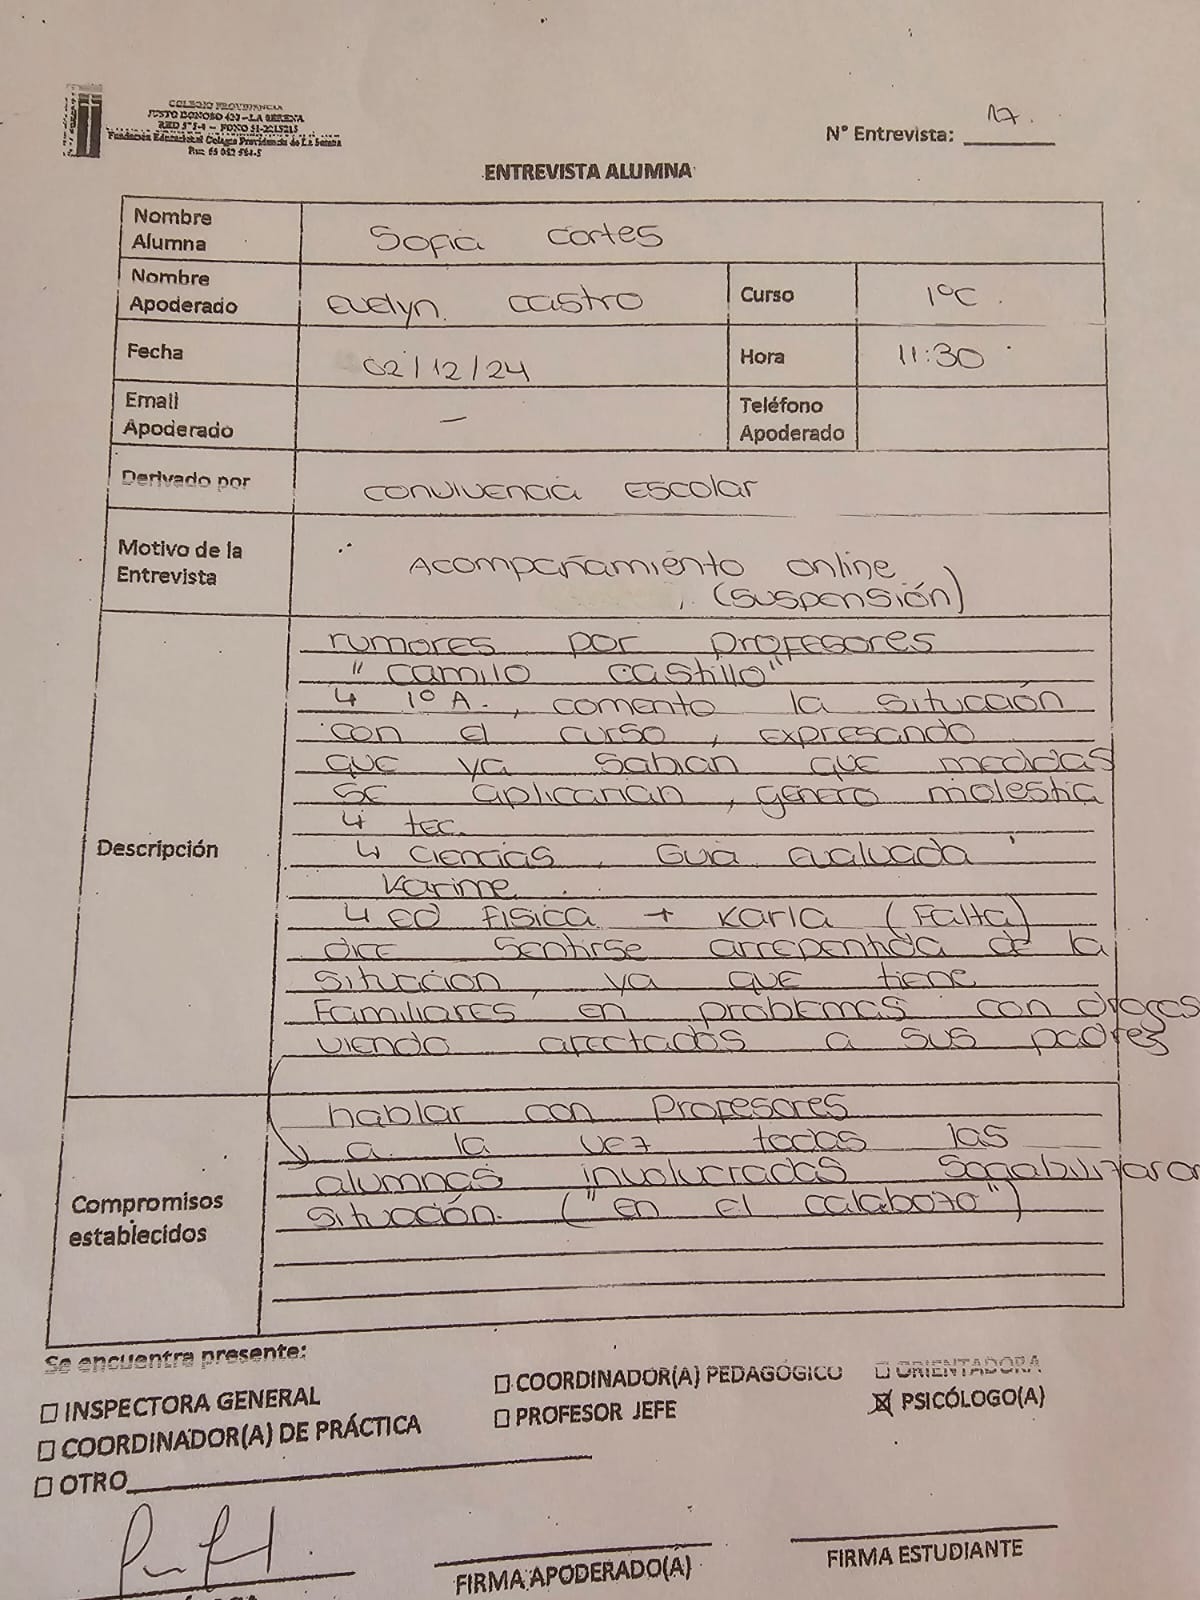 COLEGIO PROVIDENCIA
JUSTO DONOSO 420 – LA SERENA
RBD 575-4 – FONO 51-2215215
Fundación Educacional Colegio Providencia de La Serena
Rut: 65 082 564-5
N° Entrevista: 17.
ENTREVISTA ALUMNA
Nombre Alumna
Sofia Cortes
Nombre Apoderado
Evelyn. Castro
Curso
1°C.
Fecha
02/12/24
Hora
11:30
Email Apoderado
–
Teléfono Apoderado
Derivado por
Convivencia Escolar
Motivo de la Entrevista
Acompañamiento online
(suspensión)
Descripción
rumores por profesores
"Camilo Castillo"
↳ 1° A., comento la situcción
con el curso, expresando
que ya sabian que medidas
se aplicarian, genero molestia
↳ tec.
↳ ciencias, Guia evaluada
Karime.
↳ ed fisica + Karla (Falta)
dice sentirse arrepentida de la
situccion, ya que tiene
Familiares en problemas con drogas
viendo afectados a sus padres
Compromisos establecidos
hablar con Profesores
↘ a la vez todas las
alumnas involucradas
situcción. ("en el calabozo")
Se encuentra presente:
☐ INSPECTORA GENERAL
☐ COORDINADOR(A) PEDAGÓGICO
☐ ORIENTADORA
☐ COORDINADOR(A) DE PRÁCTICA
☐ PROFESOR JEFE
☒ PSICÓLOGO(A)
☐ OTRO
FIRMA APODERADO(A)
FIRMA ESTUDIANTE